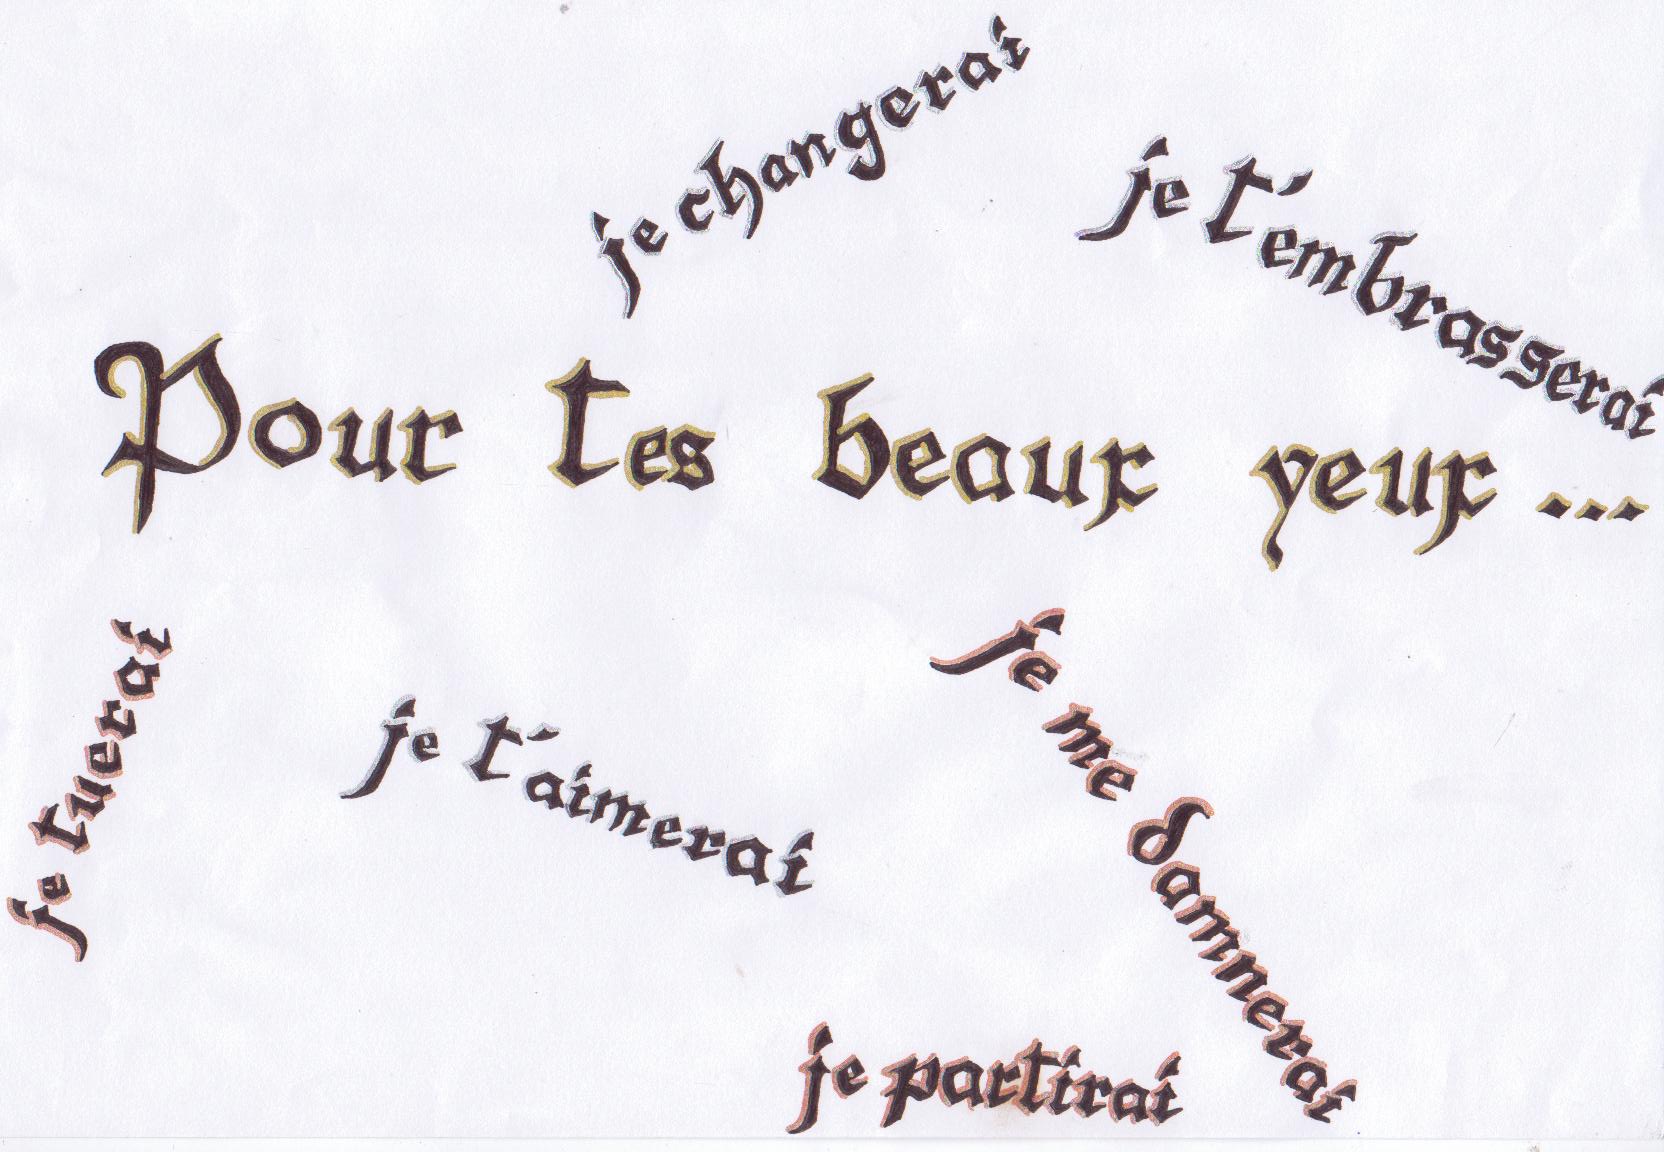 je changerai
je t'embrasserai
Pour tes beaux yeux ...
je tuerai
je t'aimerai
je me damnerai
je partirai